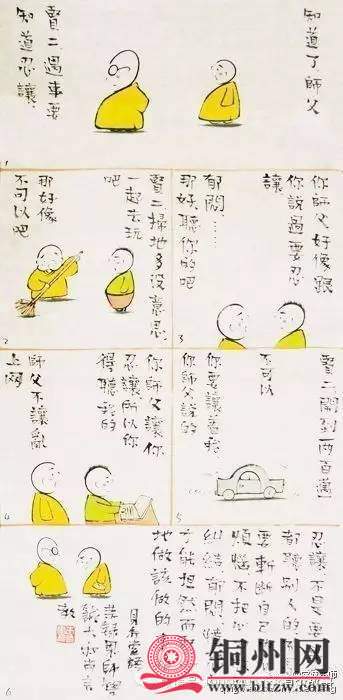 知道了師父
賢二遇事要
知道忍讓
1
賢二掃地多沒意思
一起去玩
吧
那好像
不可以吧
2
你師父好像跟
你說過要忍
讓
郁悶……
那好聽你的吧
3
你師父讓你
忍讓所以你
得聽我的
師父不讓亂
上网
4
賢二開到兩百邁
不可以
你要讓着我
你師父說的
5
忍讓不是要
都聽別人的
要斬斷自己
煩惱不把
糾結郁悶
才能坦然而
地做該做的
6
铜州网
www.bltzw.com